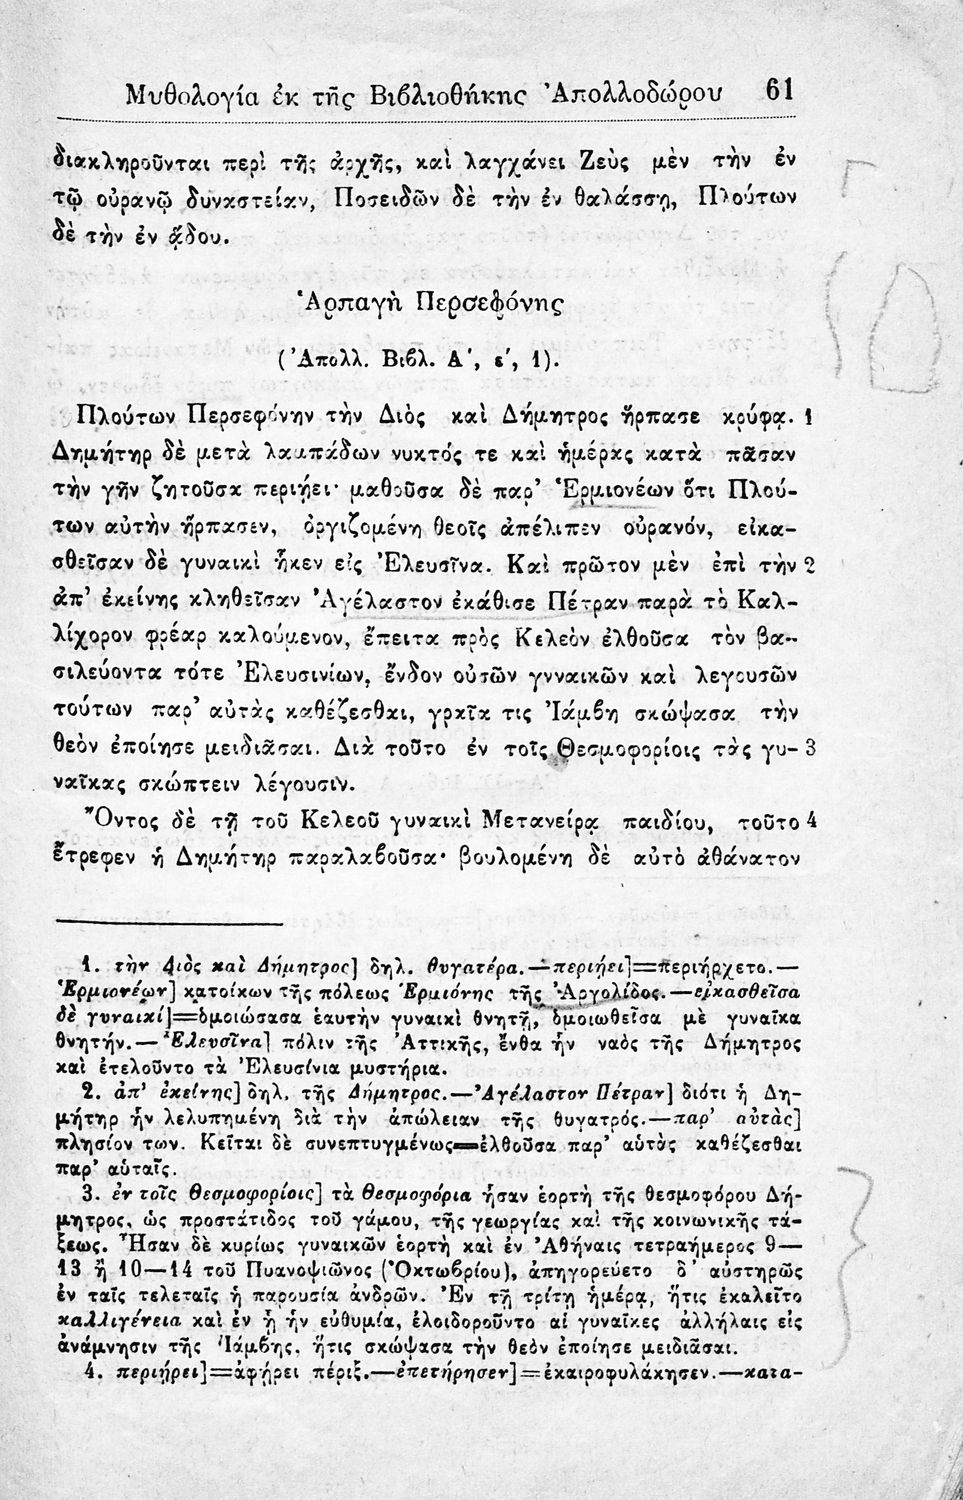 Μυθολογία ἐκ τῆς Βιβλιοθήκης Ἀπολλοδώρου 61
διακληροῦνται περὶ τῆς ἀρχῆς, καὶ λαγχάνει Ζεὺς μὲν τὴν ἐν
τῷ οὐρανῷ δυναστείαν, Ποσειδῶν δὲ τὴν ἐν θαλάσσῃ, Πλούτων
δὲ τὴν ἐν ᾅδου.
Ἁρπαγὴ Περσεφόνης
(Ἀπολλ. Βιβλ. Α΄, ε΄, 1).
Πλούτων Περσεφόνην τὴν Διὸς καὶ Δήμητρος ἥρπασε κρύφα. 1
Δημήτηρ δὲ μετὰ λαμπάδων νυκτός τε καὶ ἡμέρας κατὰ πᾶσαν
τὴν γῆν ζητοῦσα περιῄει· μαθοῦσα δὲ παρ’ Ἑρμιονέων ὅτι Πλού-
των αὐτὴν ἥρπασεν, ὀργιζομένη θεοῖς ἀπέλιπεν οὐρανόν, εἰκα-
σθεῖσαν δὲ γυναικὶ ἧκεν εἰς Ἐλευσῖνα. Καὶ πρῶτον μὲν ἐπὶ τὴν 2
ἀπ’ ἐκείνης κληθεῖσαν Ἀγέλαστον ἐκάθισε Πέτραν παρὰ τὸ Καλ-
λίχορον φρέαρ καλούμενον, ἔπειτα πρὸς Κελεὸν ἐλθοῦσα τὸν βα-
σιλεύοντα τότε Ἐλευσινίων, ἔνδον οὐσῶν γνναικῶν καὶ λεγουσῶν
τούτων παρ’ αὐτὰς καθέζεσθαι, γραῖα τις Ἰάμβη σκώψασα τὴν
θεὸν ἐποίησε μειδιᾶσαι. Διὰ τοῦτο ἐν τοῖς Θεσμοφορίοις τὰς γυ- 3
ναῖκας σκώπτειν λέγουσιν.
Ὄντος δὲ τῇ τοῦ Κελεοῦ γυναικὶ Μετανείρᾳ παιδίου, τοῦτο 4
ἔτρεφεν ἡ Δημήτηρ παραλαβοῦσα· βουλομένη δὲ αὐτὸ ἀθάνατον
1. τὴν Διὸς καὶ Δήμητρος] δηλ. θυγατέρα.—περιῄει]=περιήρχετο.—
Ἑρμιονέων] κατοίκων τῆς πόλεως Ἑρμιόνης τῆς Ἀργολίδος.—εἰκασθεῖσα
δὲ γυναικί]=ὁμοιώσασα ἑαυτὴν γυναικὶ θνητῇ, ὁμοιωθεῖσα μὲ γυναῖκα
θνητήν.—Ἐλευσῖνα] πόλιν τῆς Ἀττικῆς, ἔνθα ἦν ναὸς τῆς Δήμητρος
καὶ ἐτελοῦντο τὰ Ἐλευσίνια μυστήρια.
2. ἀπ’ ἐκείνης] δηλ. τῆς Δήμητρος.—Ἀγέλαστον Πέτραν] διότι ἡ Δη-
μήτηρ ἦν λελυπημένη διὰ τὴν ἀπώλειαν τῆς θυγατρός.—παρ’ αὐτὰς]
πλησίον των. Κεῖται δὲ συνεπτυγμένως=ἐλθοῦσα παρ’ αὐτὰς καθέζεσθαι
παρ’ αὐταῖς.
3. ἐν τοῖς Θεσμοφορίοις] τὰ Θεσμοφόρια ἦσαν ἑορτὴ τῆς θεσμοφόρου Δή-
μητρος, ὡς προστάτιδος τοῦ γάμου, τῆς γεωργίας καὶ τῆς κοινωνικῆς τά-
ξεως. Ἦσαν δὲ κυρίως γυναικῶν ἑορτὴ καὶ ἐν Ἀθήναις τετραήμερος 9—
13 ἢ 10—14 τοῦ Πυανοψιῶνος (Ὀκτωβρίου), ἀπηγορεύετο δ’ αὐστηρῶς
ἐν ταῖς τελεταῖς ἡ παρουσία ἀνδρῶν. Ἐν τῇ τρίτῃ ἡμέρᾳ, ἥτις ἐκαλεῖτο
καλλιγένεια καὶ ἐν ᾗ ἦν εὐθυμία, ἐλοιδοροῦντο αἱ γυναῖκες ἀλλήλαις εἰς
ἀνάμνησιν τῆς Ἰάμβης, ἥτις σκώψασα τὴν θεὸν ἐποίησε μειδιᾶσαι.
4. περιῄρει]=ἀφῄρει πέριξ.—ἐπετήρησεν]=ἐκαιροφυλάκησεν.—κατα-